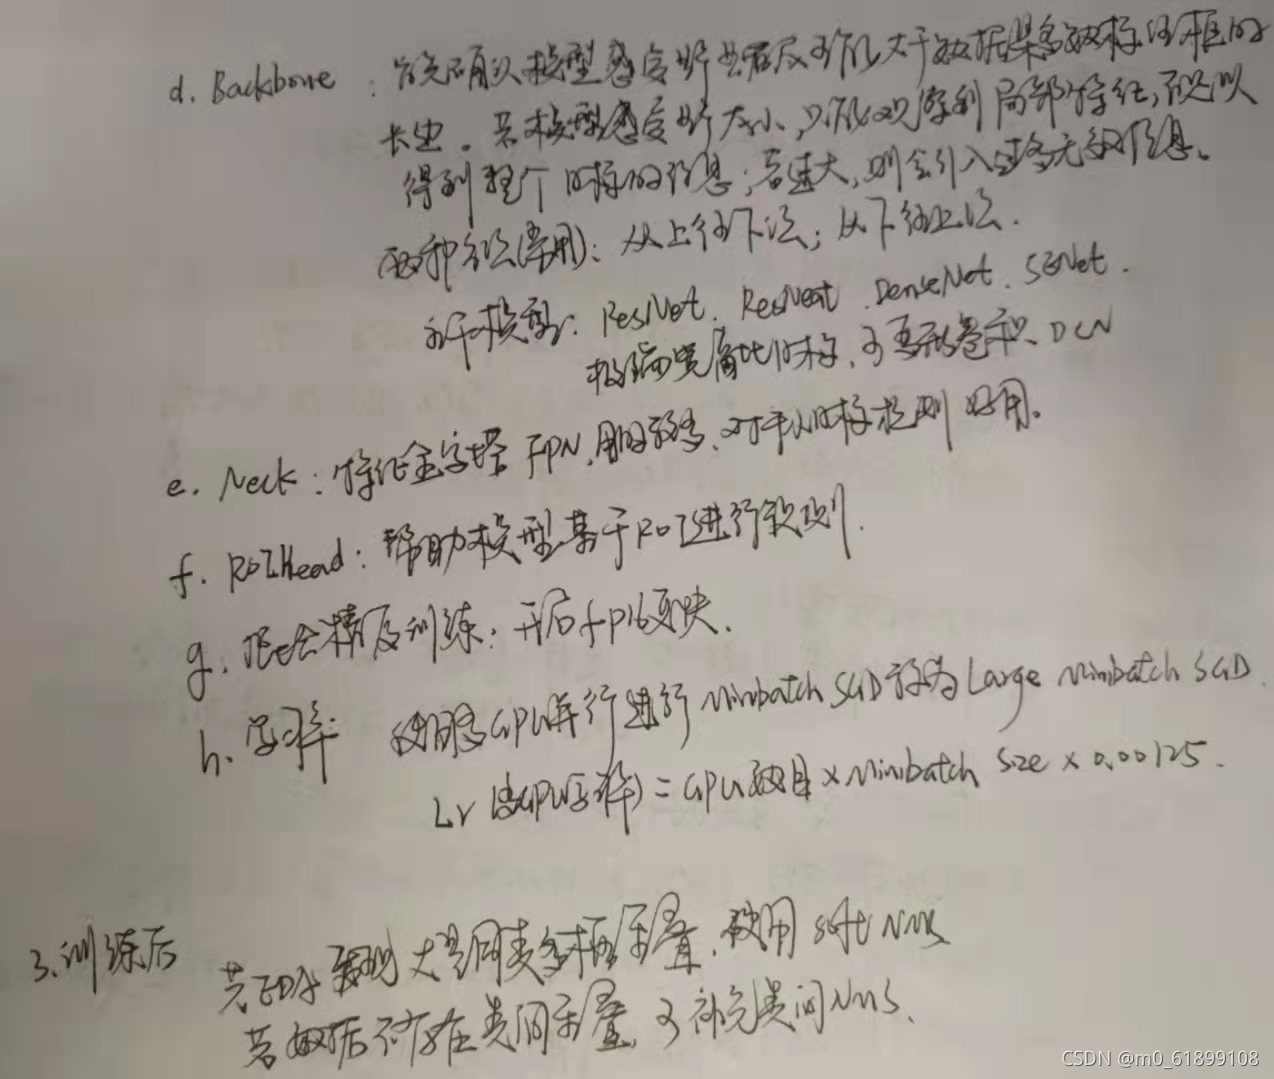 d. Backbone : 首先确认模型感受野要尽可能大于数据集多数标的框的
长边。若模型感受野太小,只能观察到局部特征,不足以
得到整个目标的信息;若过大,则会引入过多无效信息。
两种方法(常用): 从上往下法; 从下往上法.
主干模型: ResNet. ResNeat. DenseNet. SENet.
极端宽高比目标,可变形卷积、DCN
e. Neck : 特征金字塔 FPN, 用的较多、对于小目标检测好用。
f. ROIHead : 帮助模型基于ROI进行预测.
g. 混合精度训练: 开启fp16更快.
h. 学习率: 使用多GPU并行进行 Minibatch SGD 称为 Large Minibatch SGD.
Lr (单GPU学习率) = GPU数目 × Minibatch size × 0.00125.
3.训练后
若EDA发现大量同类多框重叠,使用 soft NMS
若数据不存在类间重叠,可补充类间NMS.
CSDN @m0_61899108